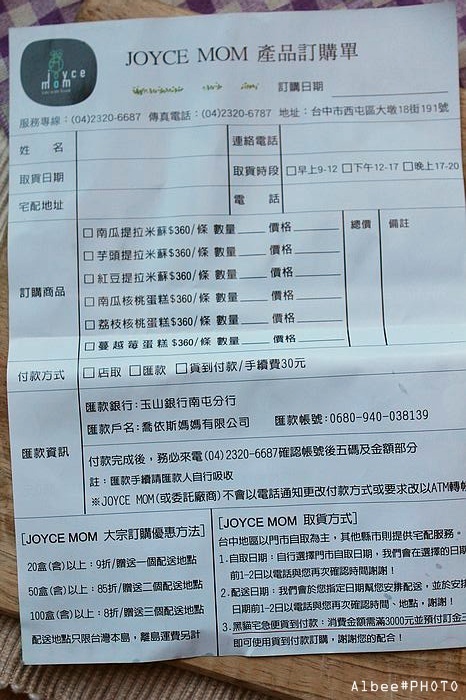 joyce
mom
JOYCE MOM 產品訂購單
訂購日期
服務專線：(04)2320-6687 傳真電話：(04)2320-6787 地址：台中市西屯區大墩18街191號
姓 名
連絡電話
取貨日期
取貨時段
□早上9-12 □下午12-17 □晚上17-20
宅配地址
電 話
訂購商品
□南瓜提拉米蘇$360/條 數量____ 價格____
□芋頭提拉米蘇$360/條 數量____ 價格____
□紅豆提拉米蘇$360/條 數量____ 價格____
□南瓜核桃蛋糕$360/條 數量____ 價格____
□荔枝核桃蛋糕$360/條 數量____ 價格____
□蔓越莓蛋糕$360/條 數量____ 價格____
總價
備註
付款方式
□店取 □匯款 □貨到付款/手續費30元
匯款資訊
匯款銀行：玉山銀行南屯分行
匯款戶名：喬依斯媽媽有限公司 匯款帳號：0680-940-038139
付款完成後，務必來電(04)2320-6687確認帳號後五碼及金額部分
註：匯款手續請匯款人自行吸收
※JOYCE MOM(或委託廠商)不會以電話通知更改付款方式或要求改以ATM轉帳
[JOYCE MOM 大宗訂購優惠方法]
20盒(含)以上：9折/贈送一個配送地點
50盒(含)以上：85折/贈送二個配送地點
100盒(含)以上：8折/贈送三個配送地點
配送地點只限台灣本島，離島運費另計
[JOYCE MOM 取貨方式]
台中地區以門市自取為主，其他縣市則提供宅配服務。
1.自取日期：自行選擇門市自取日期，我們會在選擇的日期
前1-2日以電話與您再次確認時間謝謝！
2.配送日期：我們會於您指定日期幫您安排配送，並於安排
日期前1-2日以電話與您再次確認時間、地點，謝謝！
3.黑貓宅急便貨到付款：消費金額需滿3000元並預付訂金三
即可使用貨到付款訂購，謝謝您的配合！
Albee#PHOTO